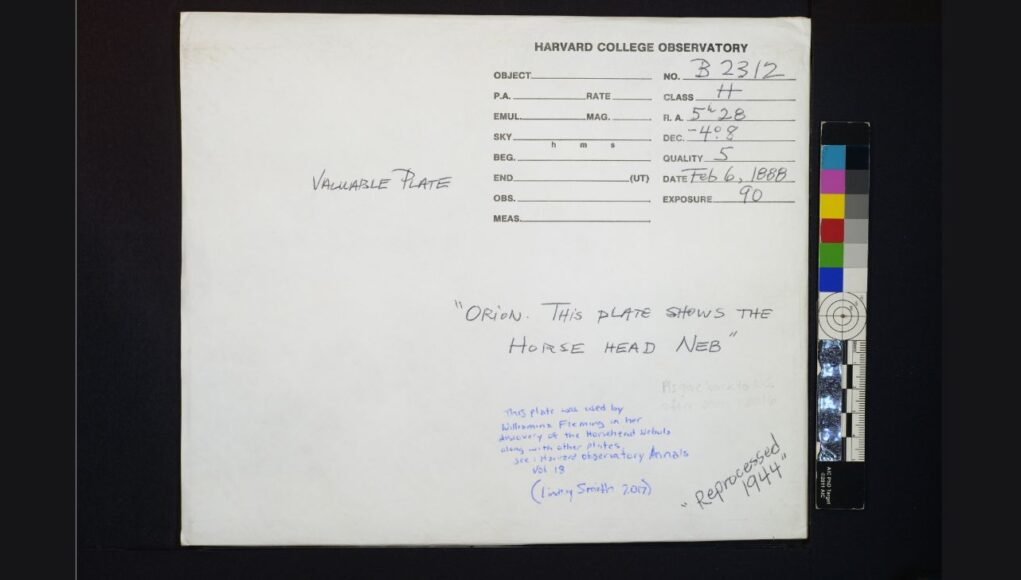 HARVARD COLLEGE OBSERVATORY
OBJECT
NO. B 2312
P.A. RATE
CLASS H
EMUL. MAG.
R. A. 5h 28
SKY
DEC. -4°.8
h m s
BEG.
QUALITY 5
END (UT)
DATE Feb 6, 1888
OBS.
EXPOSURE 90
MEAS.
VALUABLE PLATE
"ORION. THIS PLATE SHOWS THE
HORSE HEAD NEB"
This plate was used by
Williamina Fleming in her
discovery of the Horsehead Nebula
along with other plates.
see: Harvard Observatory Annals
Vol 18
(Lindsay Smith 2017)
"Reprocessed
1944"